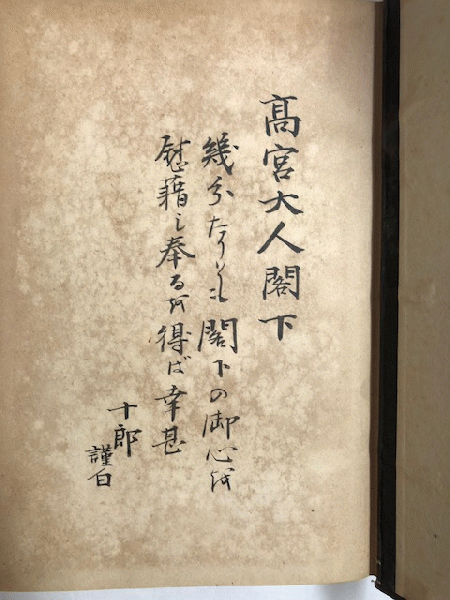 髙宮大人閣下
幾分たりとも閣下の御心を
慰藉し奉るを得ば幸甚
十郎
謹白